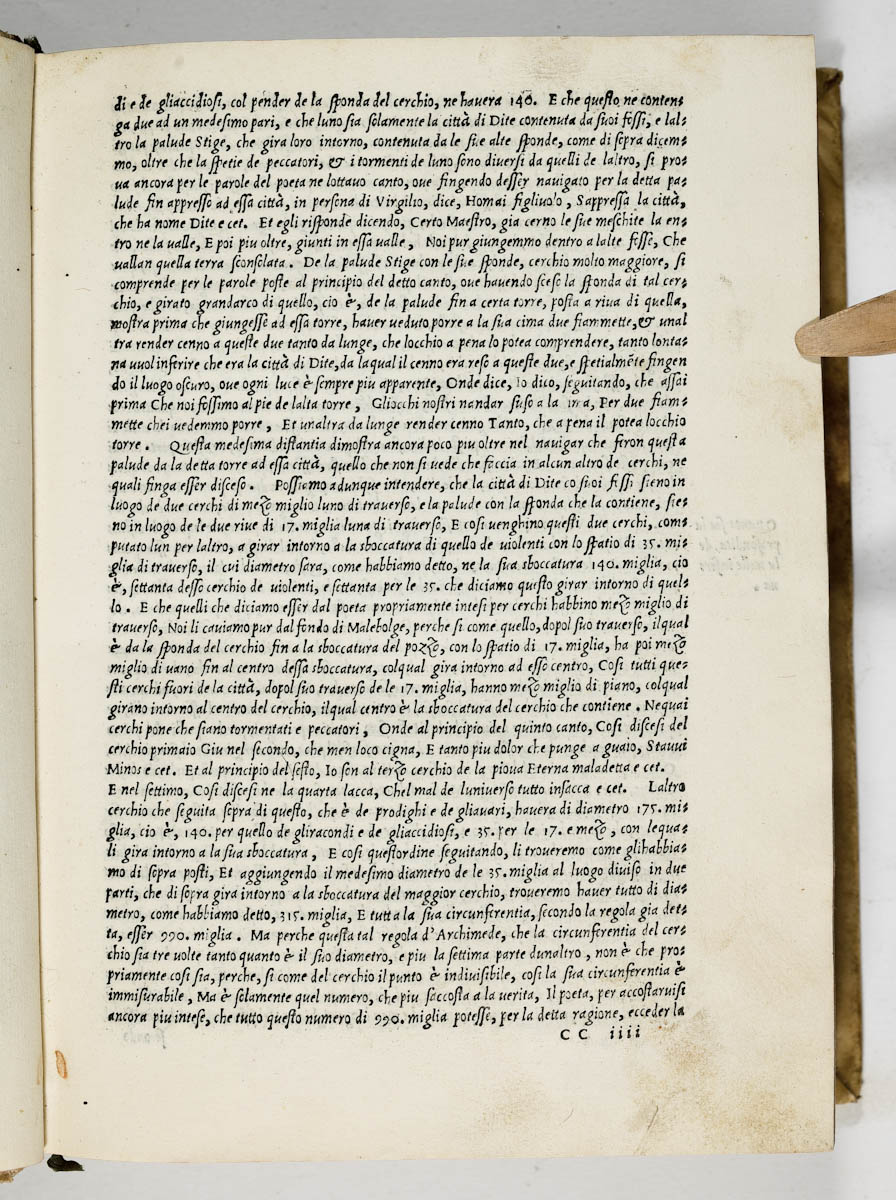 di e de gliaccidiosi, col pender de la sponda del cerchio, ne havera 140. E che questo ne conten-
ga due ad un medesimo pari, e che luno sia solamente la città di Dite contenuta da suoi fossi, e lal-
tro la palude Stige, che gira loro intorno, contenuta da le sue alte sponde, come di sopra dicem-
mo, oltre che la spetie de peccatori, & i tormenti de luno sono diversi da quelli de laltro, si pro-
va ancora per le parole del poeta ne lottavo canto, ove fingendo desser navigato per la detta pa-
lude fin appresso ad essa città, in persona di Virgilio, dice, Homai figliuolo, Sappressa la città,
che ha nome Dite e cet. Et egli risponde dicendo, Certo Maestro, gia cerno le sue meschite la en-
tro ne la valle, E poi piu oltre, giunti in essa valle, Noi pur giungemmo dentro a lalte fosse, Che
vallan quella terra sconsolata. De la palude Stige con le sue sponde, cerchio molto maggiore, si
comprende per le parole poste al principio del detto canto, ove havendo sceso la sponda di tal cer-
chio, e girato grandarco di quello, cio è, de la palude fin a certa torre, posta a riva di quella,
mostra prima che giungesse ad essa torre, haver veduto porre a la sua cima due fiammette, & unal
tra render cenno a queste due tanto da lunge, che locchio a pena lo potea comprendere, tanto lonta-
na vuol inferire che era la città di Dite, da laqual il cenno era reso a queste due, e spetialmẽte fingen
do il luogo oscuro, ove ogni luce è sempre piu apparente, Onde dice, Io dico, seguitando, che assai
prima Che noi fossimo al pie de lalta torre, Gliocchi nostri nandar suso a la ima, Per due fiam-
mette chei vedemmo porre, Et unaltra da lunge render cenno Tanto, che a pena il potea locchio
torre. Questa medesima distantia dimostra ancora poco piu oltre nel navigar che feron questa
palude da la detta torre ad essa città, quello che non si vede che faccia in alcun altro de cerchi, ne
quali finga esser disceso. Possiamo adunque intendere, che la città di Dite co suoi fossi sieno in
luogo de due cerchi di mezo miglio luno di traverso, e la palude con la sponda che la contiene, sie-
no in luogo de le due rive di 17. miglia luna di traverso, E cosi venghino questi due cerchi, com-
putato lun per laltro, a girar intorno a la sboccatura di quello de violenti con lo spatio di 35. mi-
glia di traverso, il cui diametro sara, come habbiamo detto, ne la sua sboccatura 140. miglia, cio
è, settanta desso cerchio de violenti, e settanta per le 35. che diciamo questo girar intorno di quel-
lo. E che quelli che diciamo esser dal poeta propriamente intesi per cerchi habbino mezo miglio di
traverso, Noi li caviamo pur dal fondo di Malebolge, perche si come quello, dopol suo traverso, ilqual
è da la sponda del cerchio fin a la sboccatura del pozzo, con lo spatio di 17. miglia, ha poi mezo
miglio di vano fin al centro dessa sboccatura, colqual gira intorno ad esso centro, Cosi tutti que-
sti cerchi fuori de la città, dopol suo traverso de le 17. miglia, hanno mezo miglio di piano, colqual
girano intorno al centro del cerchio, ilqual centro è la sboccatura del cerchio che contiene. Nequai
cerchi pone che siano tormentati e peccatori, Onde al principio del quinto canto, Cosi discesi del
cerchio primaio Giu nel secondo, che men loco cigna, E tanto piu dolor che punge a guaio, Stavvi
Minos e cet. Et al principio del sesto, Io son al terzo cerchio de la piova Eterna maladetta e cet.
E nel settimo, Cosi discesi ne la quarta lacca, Chel mal de luniverso tutto insacca e cet. Laltro
cerchio che seguita sopra di questo, che è de prodighi e de gliavari, havera di diametro 175. mi-
glia, cio è, 140. per quello de gliracondi e de gliaccidiosi, e 35. per le 17. e mezo, con lequa-
li gira intorno a la sua sboccatura, E cosi questordine seguitando, li troveremo come glihabbia-
mo di sopra posti, Et aggiungendo il medesimo diametro de le 35. miglia al luogo diviso in due
parti, che di sopra gira intorno a la sboccatura del maggior cerchio, troveremo haver tutto di dia-
metro, come habbiamo detto, 315. miglia, E tutta la sua circunferentia, secondo la regola gia det-
ta, esser 990. miglia. Ma perche questa tal regola d'Archimede, che la circunferentia del cer-
chio sia tre volte tanto quanto è il suo diametro, e piu la settima parte dunaltro, non è che pro-
priamente cosi sia, perche, si come del cerchio il punto è indivisibile, cosi la sua circunferentia è
immisurabile, Ma è solamente quel numero, che piu saccosta a la verita, Il poeta, per accostarvisi
ancora piu intese, che tutto questo numero di 990. miglia potesse, per la detta ragione, ecceder la
CC iiii